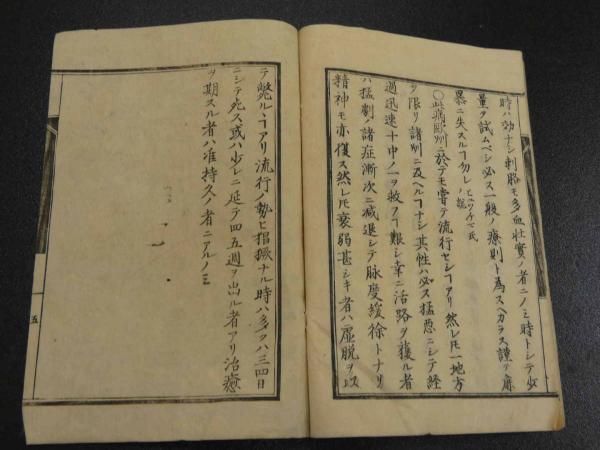 時ハ効ナシ刺胳モ多血壮實ノ者ニノミ時トシテ少
量ヲ試ムベシ必ス一般ノ療則ト為スヘカラス謹テ麻
暴ニ失スルヿ勿レ
ノ説
〇此病歐洲ニ於テモ嘗テ流行セシヿアリ然レ𪜈一地方
ヲ限リ諸洲ニ及ヘルヿナシ其性ハ必ス猛悪ニシテ経
過迅速十中ノ一ヲ救フヿ難シ幸ニ活路ヲ獲ル者
ハ猛劇ノ諸症漸次ニ減退シテ脉度緩徐トナリ
精神モ亦復ス然レ𪜈衰弱甚シキ者ハ虚脱ヲ以
テ斃ルヿアリ流行ノ勢ヒ猖獗ナル時ハ多クハ三四日
ニシテ死ス或ハ少シニ延テ四五週ヲ出ル者アリ治癒
ヲ期スル者ハ准持久ノ者ニアルノミ
五